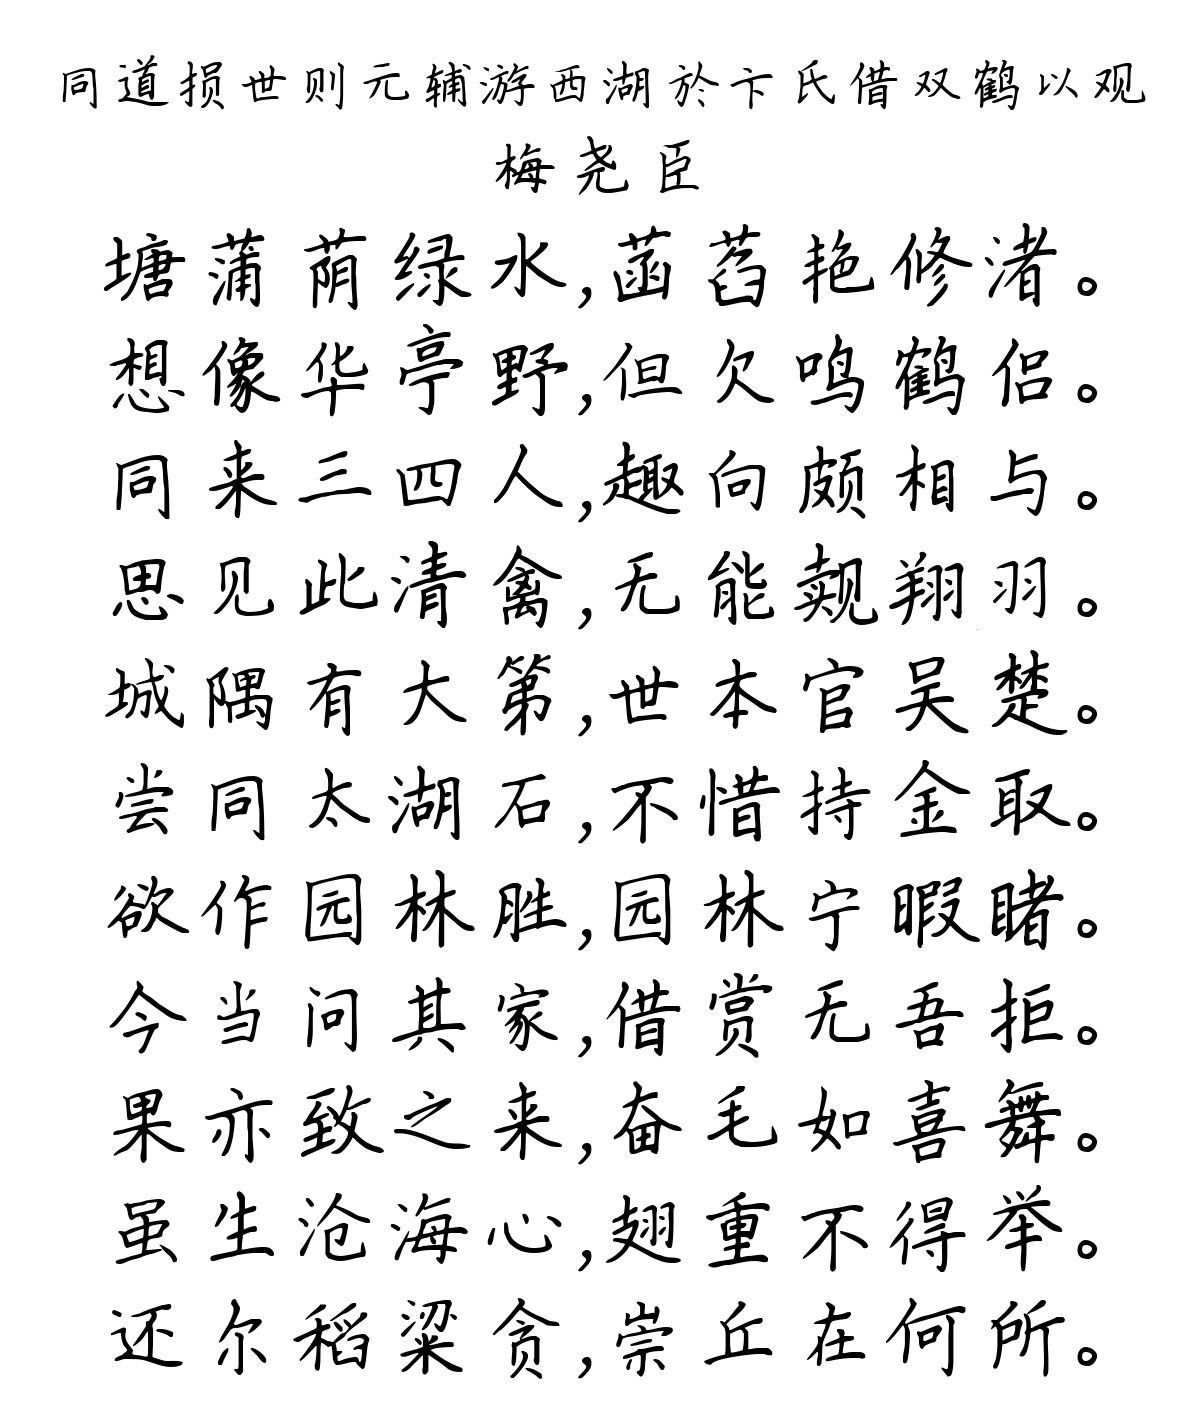 同道损世则元辅游西湖於卞氏借双鹤以观
梅尧臣
塘蒲荫绿水,菡萏艳修渚。
想像华亭野,但欠鸣鹤侣。
同来三四人,趣向颇相与。
思见此清禽,无能觌翔羽。
城隅有大第,世本官吴楚。
尝同太湖石,不惜持金取。
欲作园林胜,园林宁暇睹。
今当问其家,借赏无吾拒。
果亦致之来,奋毛如喜舞。
虽生沧海心,翅重不得举。
还尔稻粱贪,崇丘在何所。